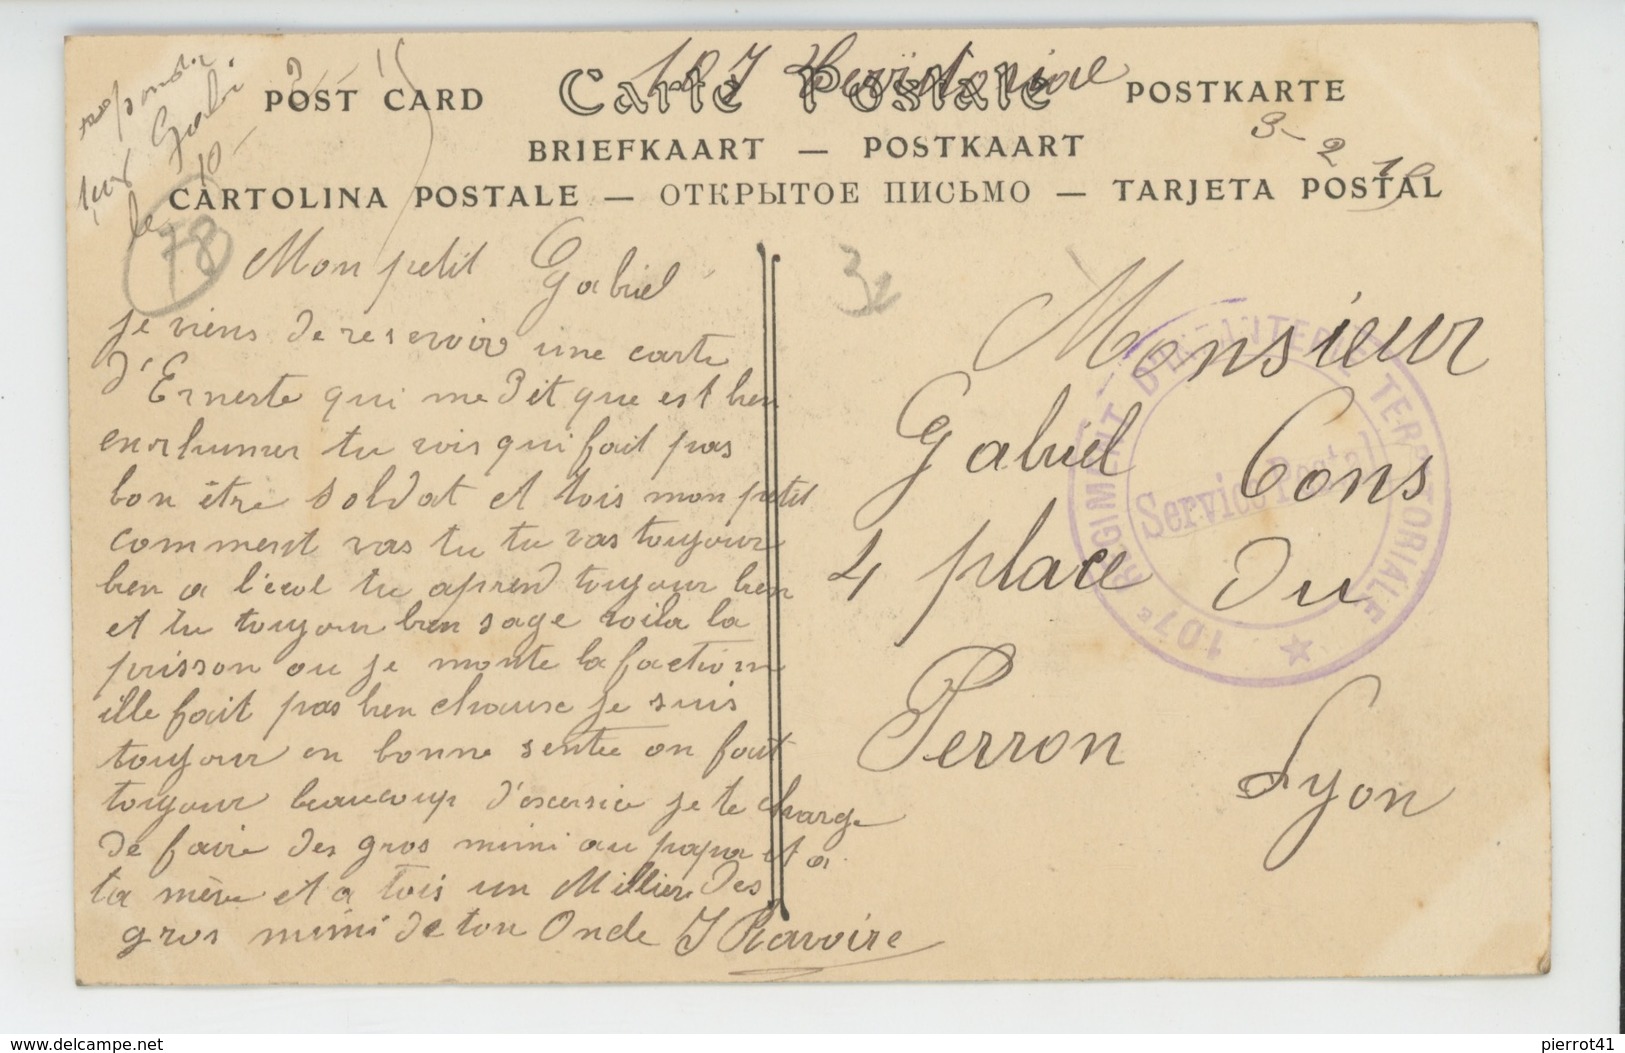 repondu
par Gabi
le 10-2-15
107 Territoriale
POST CARD Carte Postale POSTKARTE
BRIEFKAART — POSTKAART
CARTOLINA POSTALE — ОТКРЫТОЕ ПИСЬМО — TARJETA POSTAL
3-2
78
Mon petit Gabriel
je viens de reservoir une carte
d'Erneste qui me dit que est bien
enrhumer tu vois qui fait pas
bon être soldat et tois mon petit
comment vas tu tu vas toujour
bien a l'écol tu aprend toujour bien
et tu toujour bien sage voila la
prisson ou je monte la faction
ille fait pas bien chause je suis
toujour en bonne sentée on fait
toujour beaucoup d'excersice je te charge
de faire des gros mimi au papa et a
ta mère et a tois un Millier des
gros mimi de ton Oncle J Ravoire
32
Monsieur
Gabriel Cons
4 place du
Perron
Lyon
107e REGIMENT D'INFANTERIE TERRITORIALE
Service Postal
pierrot41
https://www.delcampe.net